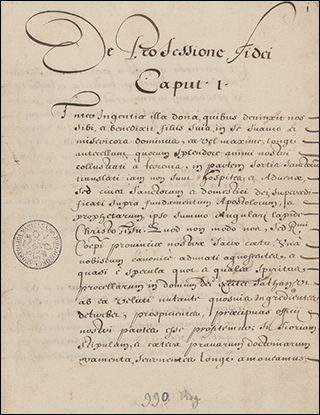 De Professione Fidei
Caput · I ·
Inter Ingentia illa dona, quibus devinxit nos
sibi, a benedixit filijs suis, in se suavis a
misericors dominus, ea vel maxime longe
antecellunt, quorum splendore animi nostri
collustrati a tenebris, in partem sortis Sanctorum
translati iam non sumus hospites, a Advenae
Sed cives Sanctorum a domestici dei superaedi-
ficati supra fundamentum Apostolorum, a
prophetarum, ipso summo Angulari lapide
Christo Jesu. Quod non modo nos, sed
Coepi provinciae nostrae sacro coetu Una
nobiscum canonice adunati agnoscentes, a
quasi e specula quot a quales Spiritus
procellarum in domum dei
ab ea veluti nutante quosvis ingredientes
deturbet, prospicientes, praecipuas officij
nostri partes esse
stipulam, a caetera pravarum doctrinarum
longe amoveamus
990